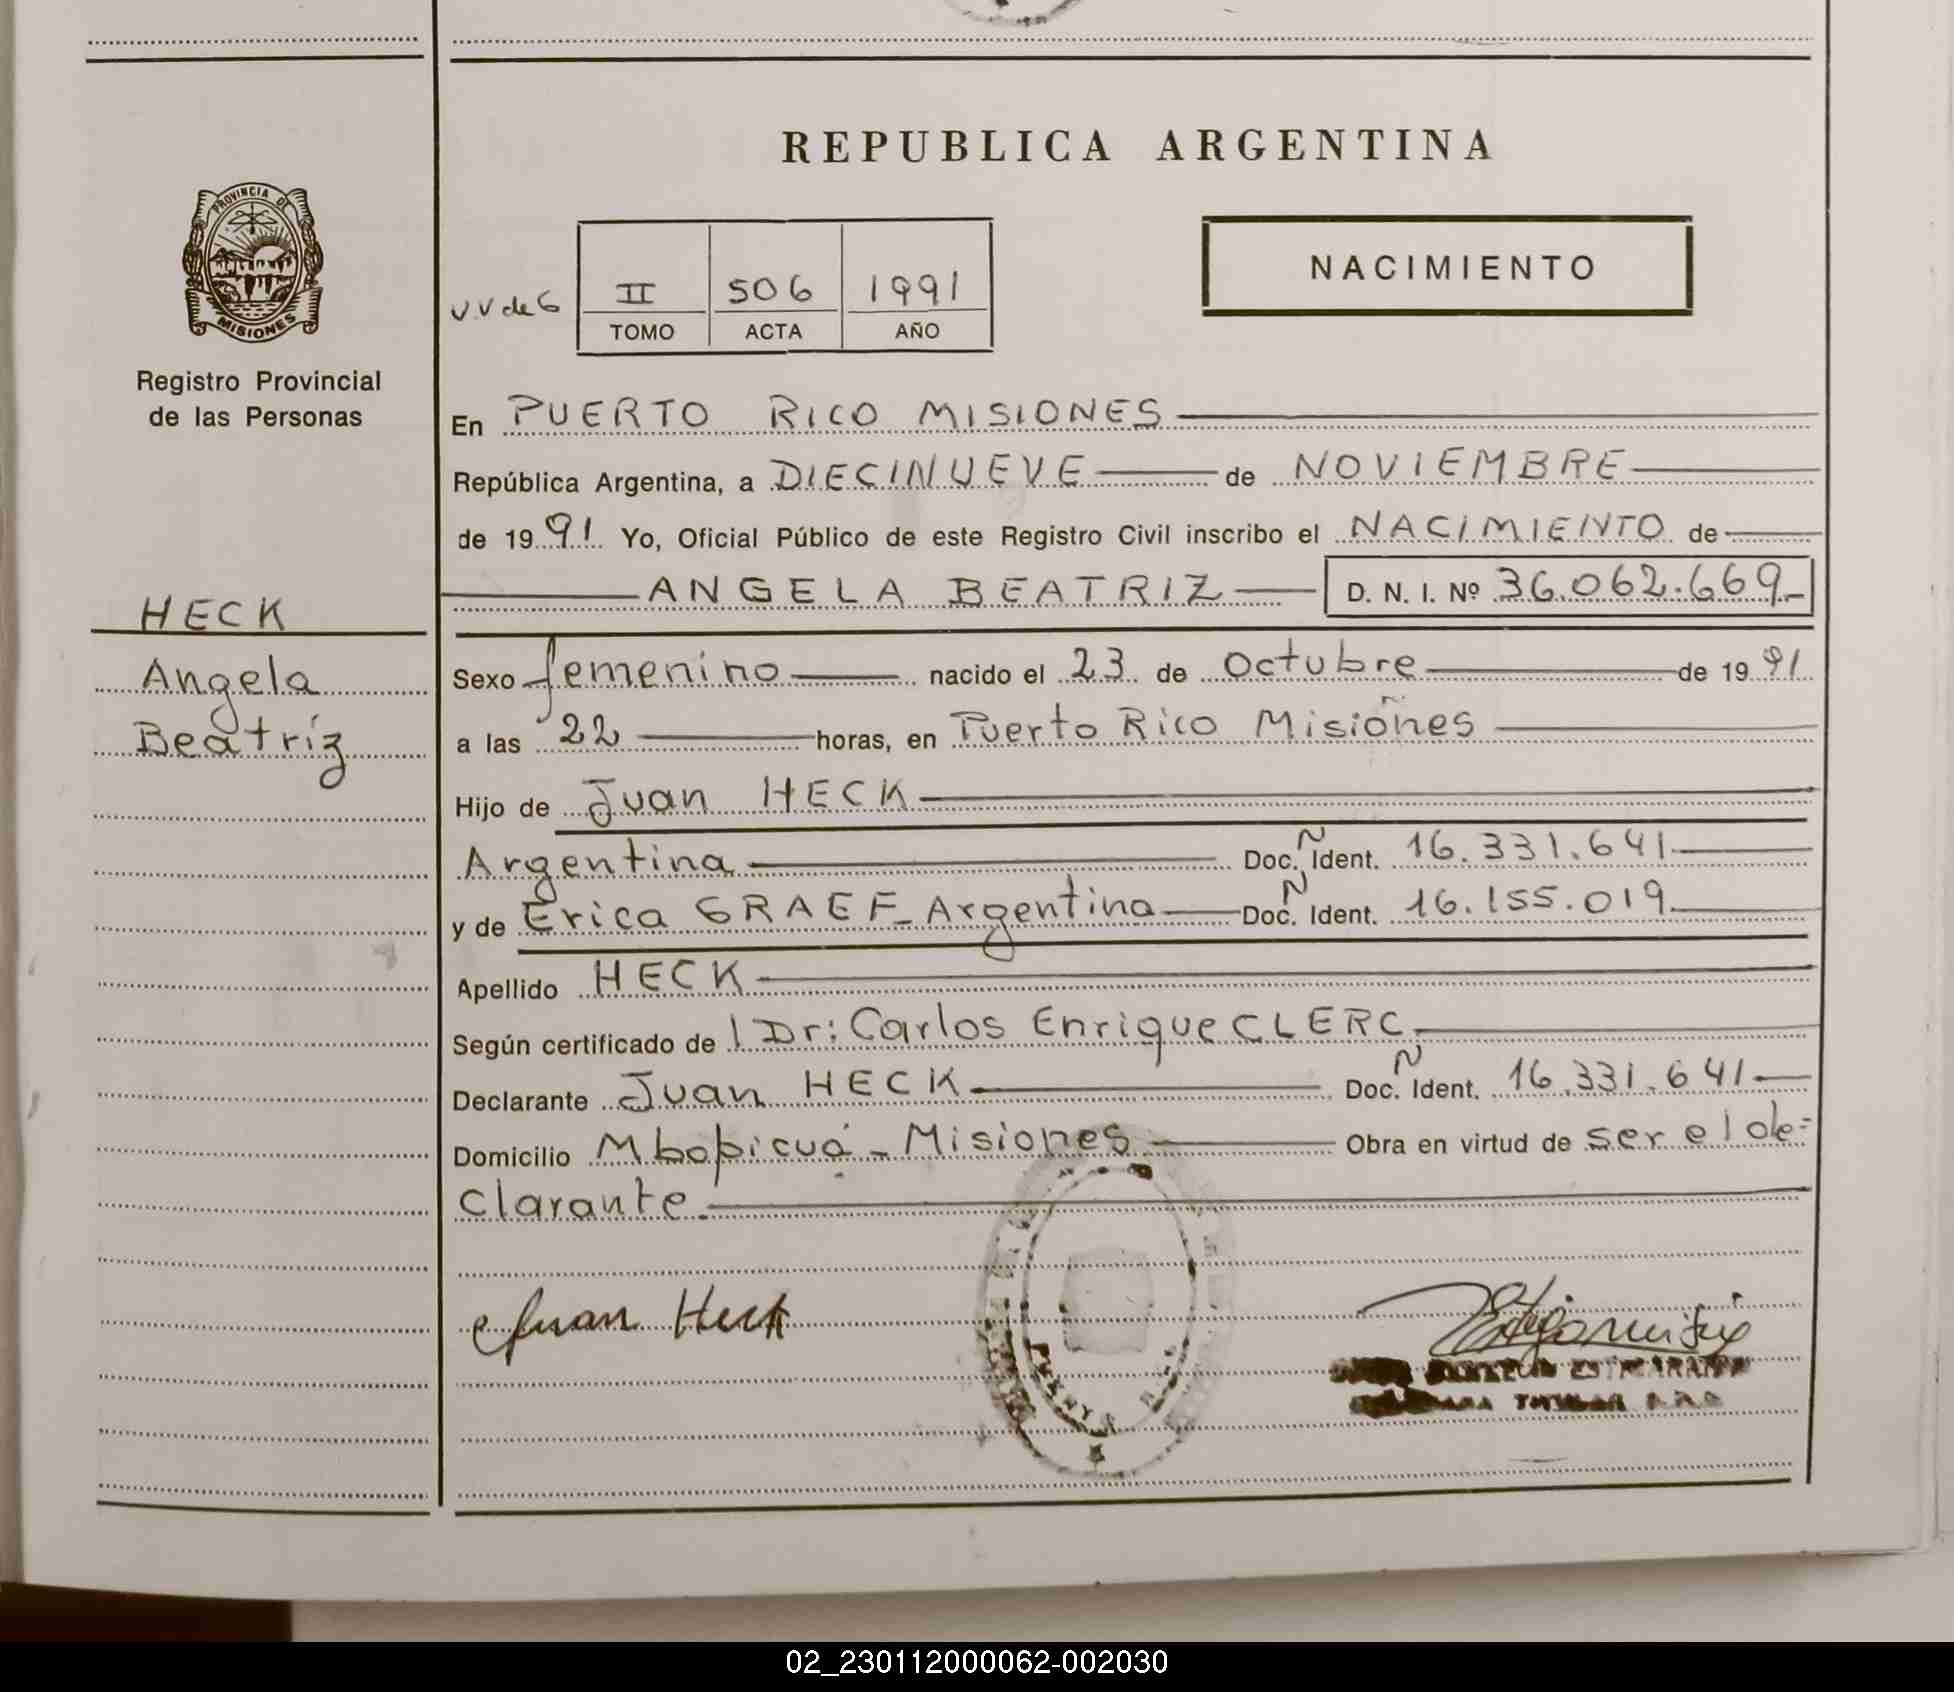 REPUBLICA ARGENTINA
PROVINCIA DE
MISIONES
Registro Provincial
de las Personas
NACIMIENTO
II 506 1991
TOMO ACTA AÑO
En PUERTO RICO MISIONES
República Argentina, a DIECINUEVE de NOVIEMBRE
de 1991 Yo, Oficial Público de este Registro Civil inscribo el NACIMIENTO de
ANGELA BEATRIZ D. N. I. Nº 36.062.669
HECK
Angela
Beatríz
Sexo femenino nacido el 23 de Octubre de 1991
a las 22 horas, en Puerto Rico Misiones
Hijo de Juan HECK
Argentina Doc. Ñ Ident. 16.331.641
y de Erica GRAEF Argentina Doc. Ñ Ident. 16.155.019
Apellido HECK
Según certificado de Dr: Carlos Enrique CLERC
Declarante Juan HECK Doc. Ñ Ident. 16.331.641
Domicilio Mbopicuá - Misiones Obra en virtud de ser el de=
clarante.
Juan Heck
02_230112000062-002030